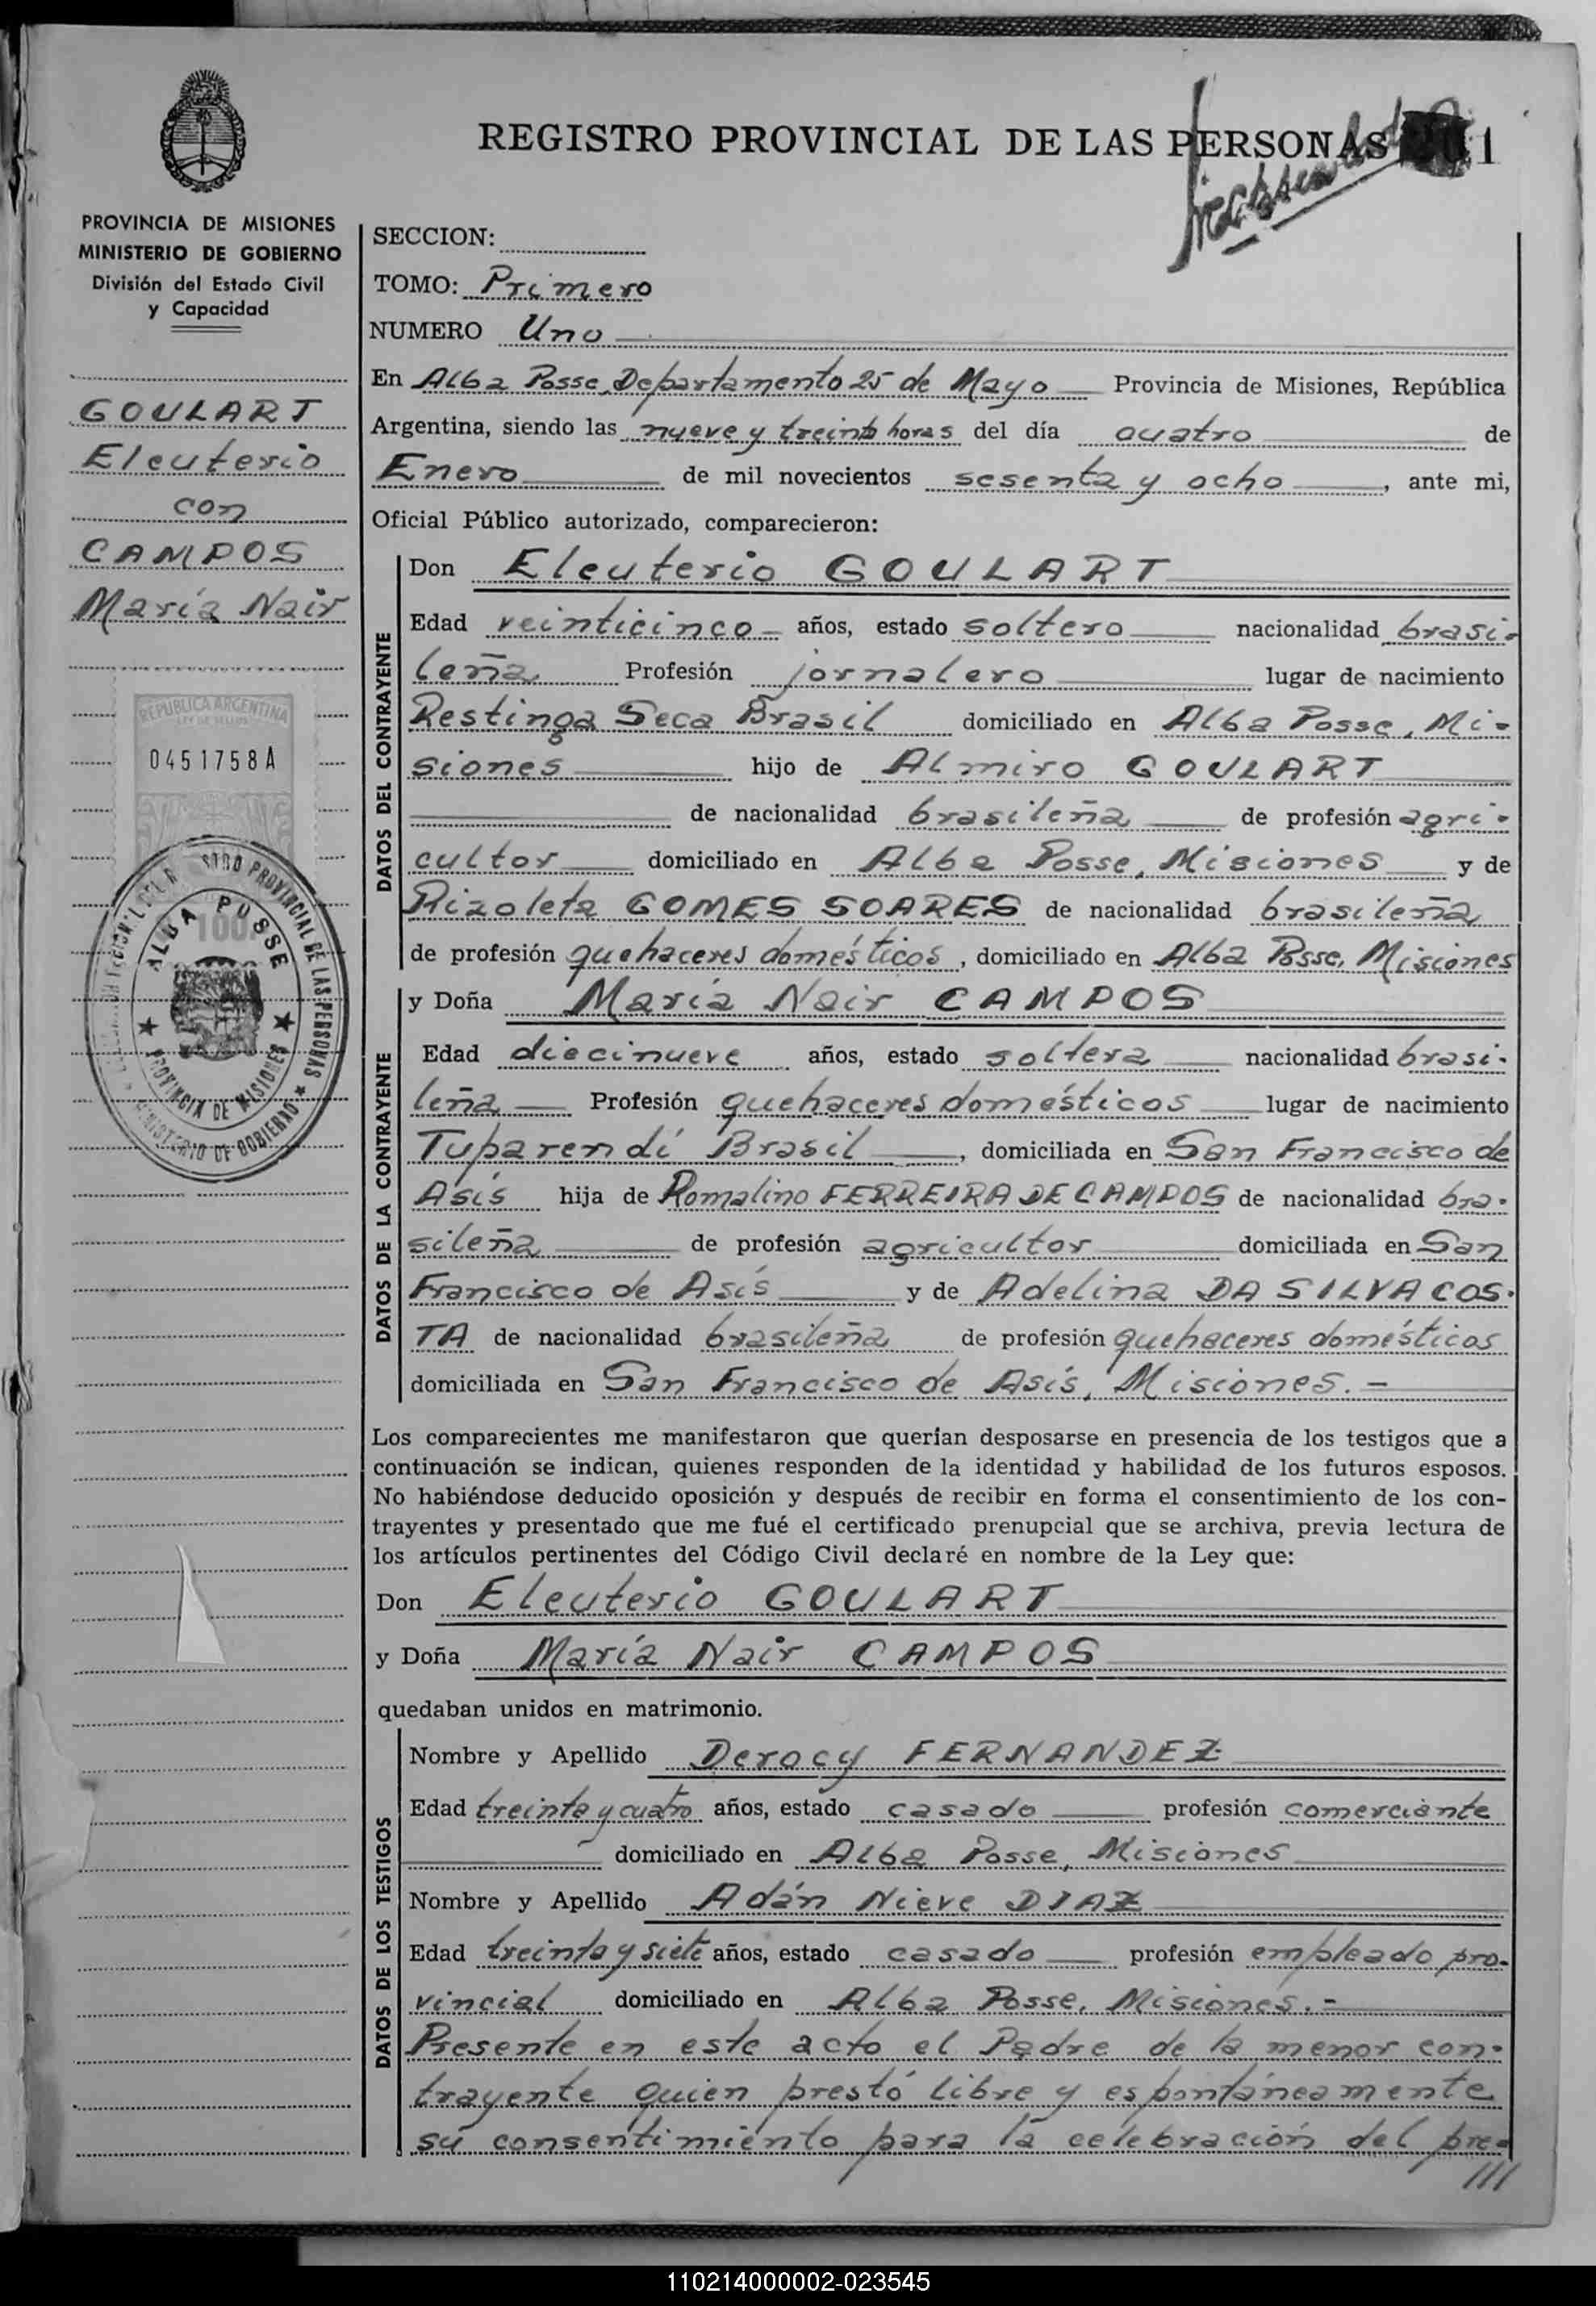 REGISTRO PROVINCIAL DE LAS PERSONAS 1
PROVINCIA DE MISIONES
MINISTERIO DE GOBIERNO
División del Estado Civil
y Capacidad
GOULART
Eleuterio
con
CAMPOS
María Nair
REPUBLICA ARGENTINA
LEY DE SELLOS
0451758A
100
REGISTRO PROVINCIAL DE LAS PERSONAS
ALBA POSSE
PROVINCIA DE MISIONES
MINISTERIO DE GOBIERNO
SECCION:
TOMO: Primero
NUMERO Uno
En Alba Posse, Departamento 25 de Mayo Provincia de Misiones, República
Argentina, siendo las nueve y treinta horas del día cuatro de
Enero de mil novecientos sesenta y ocho, ante mi,
Oficial Público autorizado, comparecieron:
DATOS DEL CONTRAYENTE
Don Eleuterio GOULART
Edad veinticinco años, estado soltero nacionalidad brasi-
leña Profesión jornalero lugar de nacimiento
Restinga Seca Brasil domiciliado en Alba Posse, Mi-
siones hijo de Almiro GOULART
de nacionalidad brasileña de profesión agri-
cultor domiciliado en Alba Posse, Misiones y de
Rizoleta GOMES SOARES de nacionalidad brasileña
de profesión quehaceres domésticos, domiciliado en Alba Posse, Misiones
DATOS DE LA CONTRAYENTE
y Doña María Nair CAMPOS
Edad diecinueve años, estado soltera nacionalidad brasi-
leña Profesión quehaceres domésticos lugar de nacimiento
Tuparendí Brasil, domiciliada en San Francisco de
Asís hija de Romalino FERREIRA DE CAMPOS de nacionalidad bra-
sileña de profesión agricultor domiciliada en San
Francisco de Asís y de Adelina DA SILVA COS-
TA de nacionalidad brasileña de profesión quehaceres domésticos
domiciliada en San Francisco de Asís, Misiones.-
Los comparecientes me manifestaron que querían desposarse en presencia de los testigos que a
continuación se indican, quienes responden de la identidad y habilidad de los futuros esposos.
No habiéndose deducido oposición y después de recibir en forma el consentimiento de los con-
trayentes y presentado que me fué el certificado prenupcial que se archiva, previa lectura de
los artículos pertinentes del Código Civil declaré en nombre de la Ley que:
Don Eleuterio GOULART
y Doña María Nair CAMPOS
quedaban unidos en matrimonio.
DATOS DE LOS TESTIGOS
Nombre y Apellido Derocy FERNANDEZ
Edad treinta y cuatro años, estado casado profesión comerciante
domiciliado en Alba Posse, Misiones
Nombre y Apellido Adán Nieve DIAZ
Edad treinta y siete años, estado casado profesión empleado pro-
vincial domiciliado en Alba Posse, Misiones.-
Presente en este acto el Padre de la menor con-
trayente quien prestó libre y espontáneamente
su consentimiento para la celebración del pre-
///
110214000002-023545